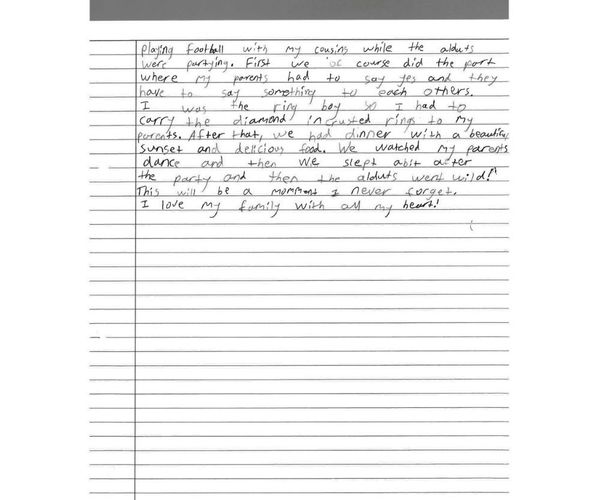 playing football with my cousins while the alduts
were partying. First we of course did the part
where my parents had to say yes and they
have to say something to each others.
I was the ring boy so I had to
carry the diamond incrusted rings to my
parents. After that, we had dinner with a beautiful
sunset and delicious food. We watched my parents
dance and then we slept abit after
the party and then the alduts went wild!
This will be a momment I never forget.
I love my family with all my heart!